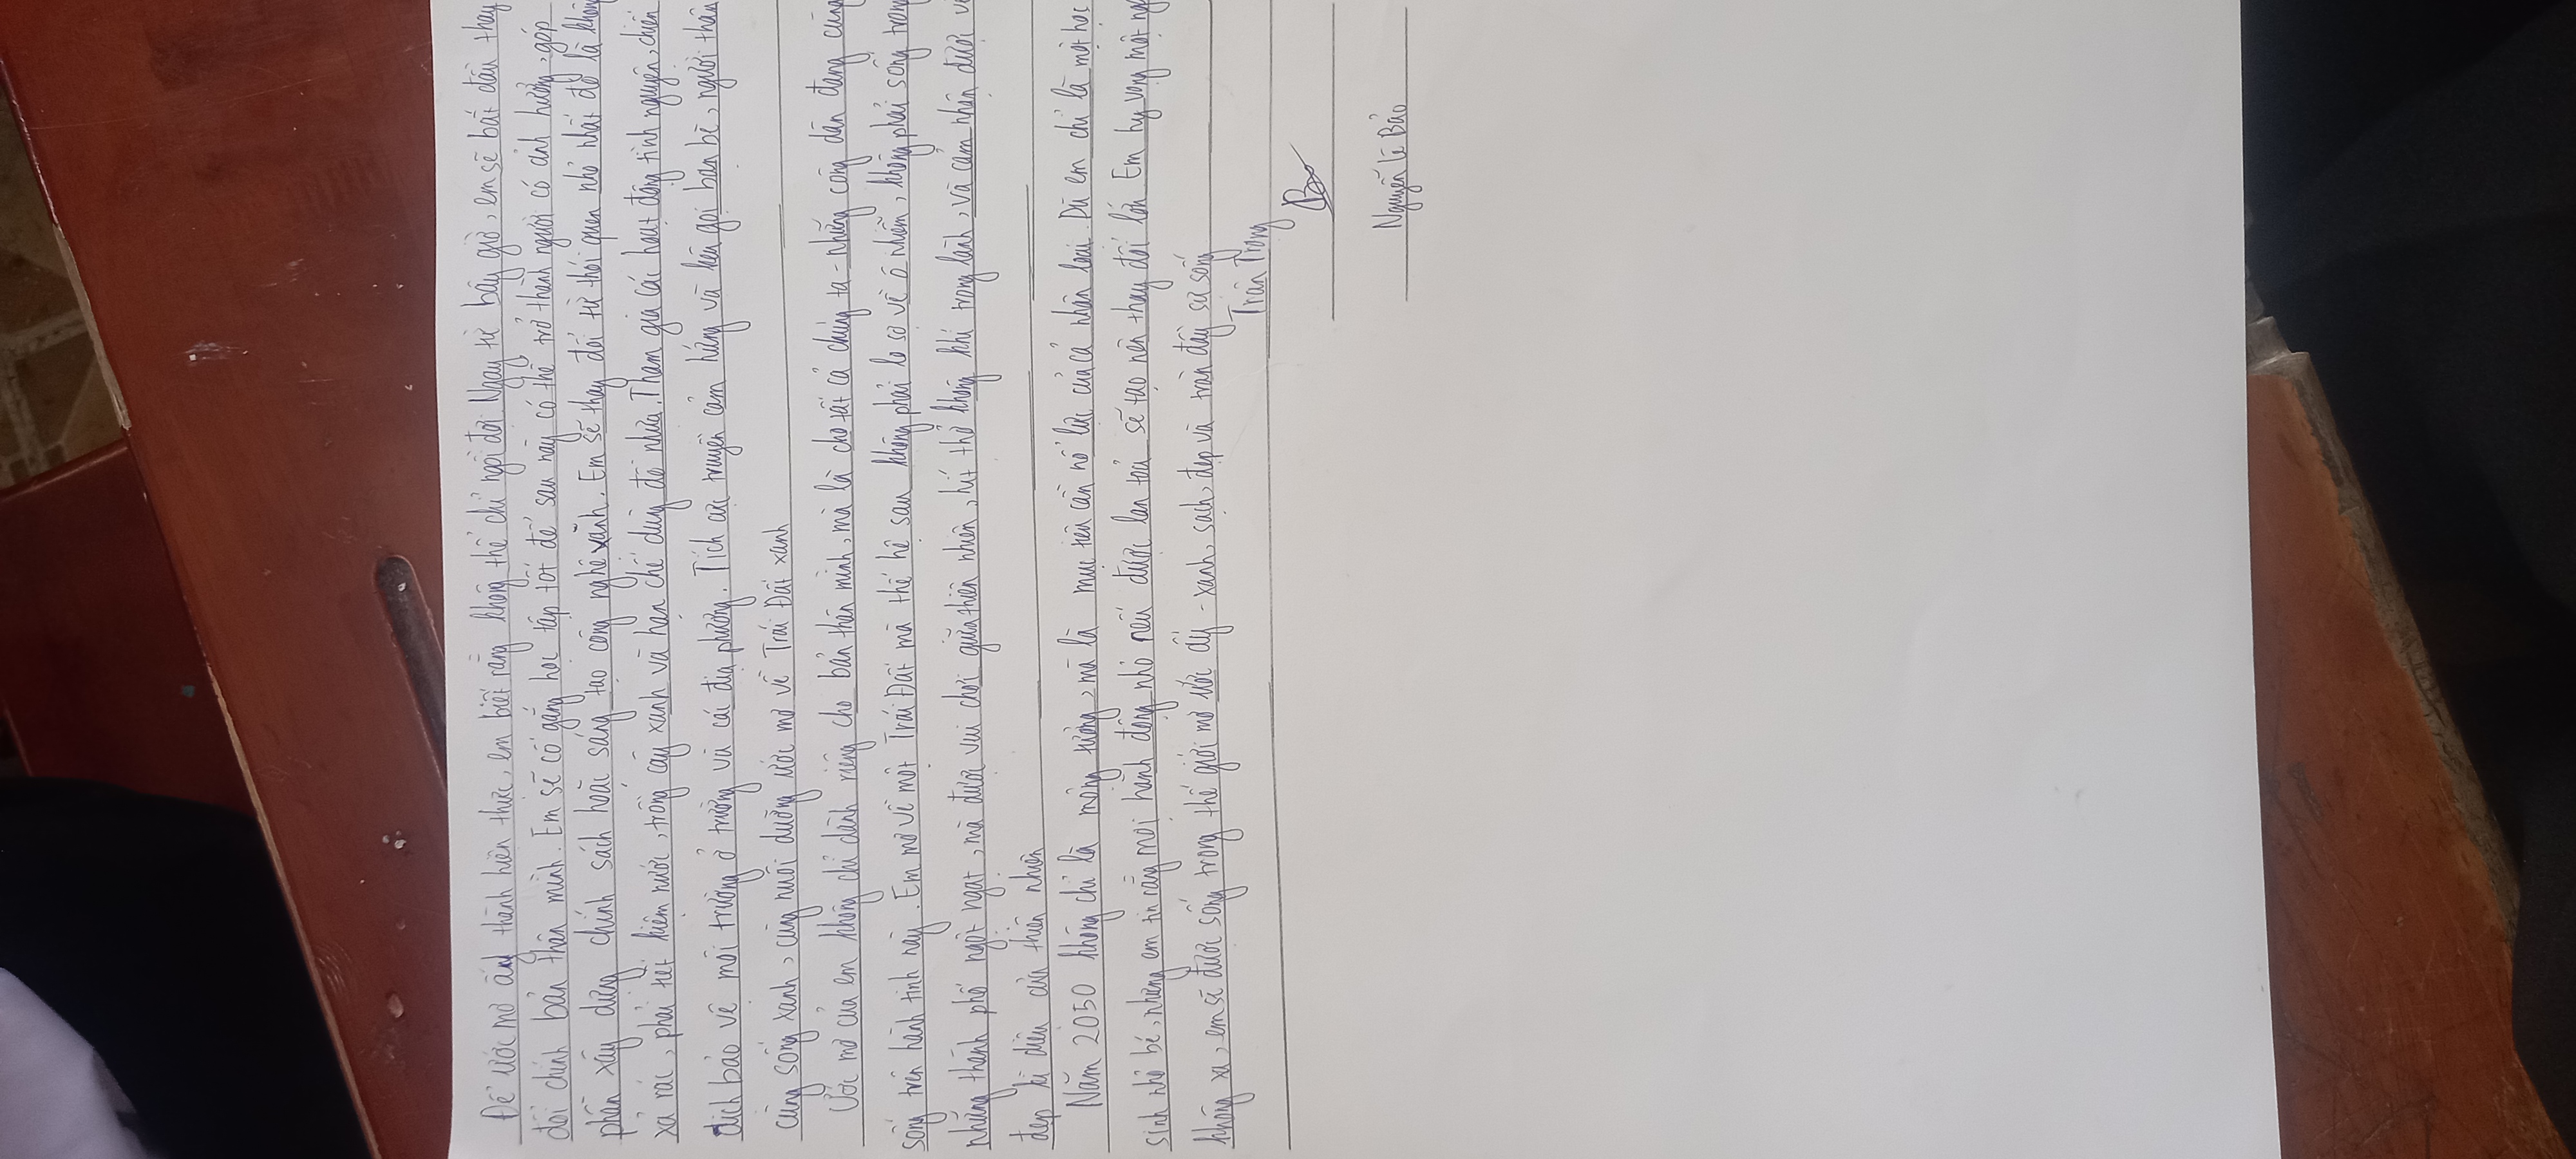 Để ước mơ ấy thành hiện thực, em biết rằng không thể chỉ ngồi đợi. Ngay từ bây giờ, em sẽ bắt đầu thay
đổi chính bản thân mình. Em sẽ cố gắng học tập tốt để sau này có thể trở thành người có ảnh hưởng, góp
phần xây dựng chính sách hoặc sáng tạo công nghệ xanh. Em sẽ thay đổi từ thói quen nhỏ nhất đó là không
xả rác, phải tiết kiệm nước, trồng cây xanh và hạn chế dùng đồ nhựa. Tham gia cái hoạt động tình nguyện, chiến
dịch bảo vệ môi trường ở trường và cái địa phương. Tích cực truyền cảm hứng và kêu gọi bạn bè, người thân
cùng sống xanh, cùng nuôi dưỡng ước mơ về Trái Đất xanh
Ước mơ của em không chỉ dành riêng cho bản thân mình, mà là cho tất cả chúng ta - những công dân đang cùng
sống trên hành tinh này. Em mơ về một Trái Đất mà thế hệ sau không phải lo sợ về ô nhiễm, không phải sống trong
những thành phố ngột ngạt, mà được vui chơi giữa thiên nhiên, hít thở không khí trong lành, và cảm nhận được vẻ
đẹp kì diệu của thiên nhiên
Năm 2050 không chỉ là mộng tưởng, mà là mục tiêu cần nỗ lực của cả nhân loại. Dù em chỉ là một học
sinh nhỏ bé, nhưng em tin rằng mọi hành động nhỏ nếu được lan tỏa sẽ tạo nên thay đổi lớn. Em hy vọng một ngày
không xa, em sẽ được sống trong thế giới mơ ước ấy - xanh, sạch, đẹp và tràn đầy sự sống
Trân Trọng
Nguyễn Lê Bảo